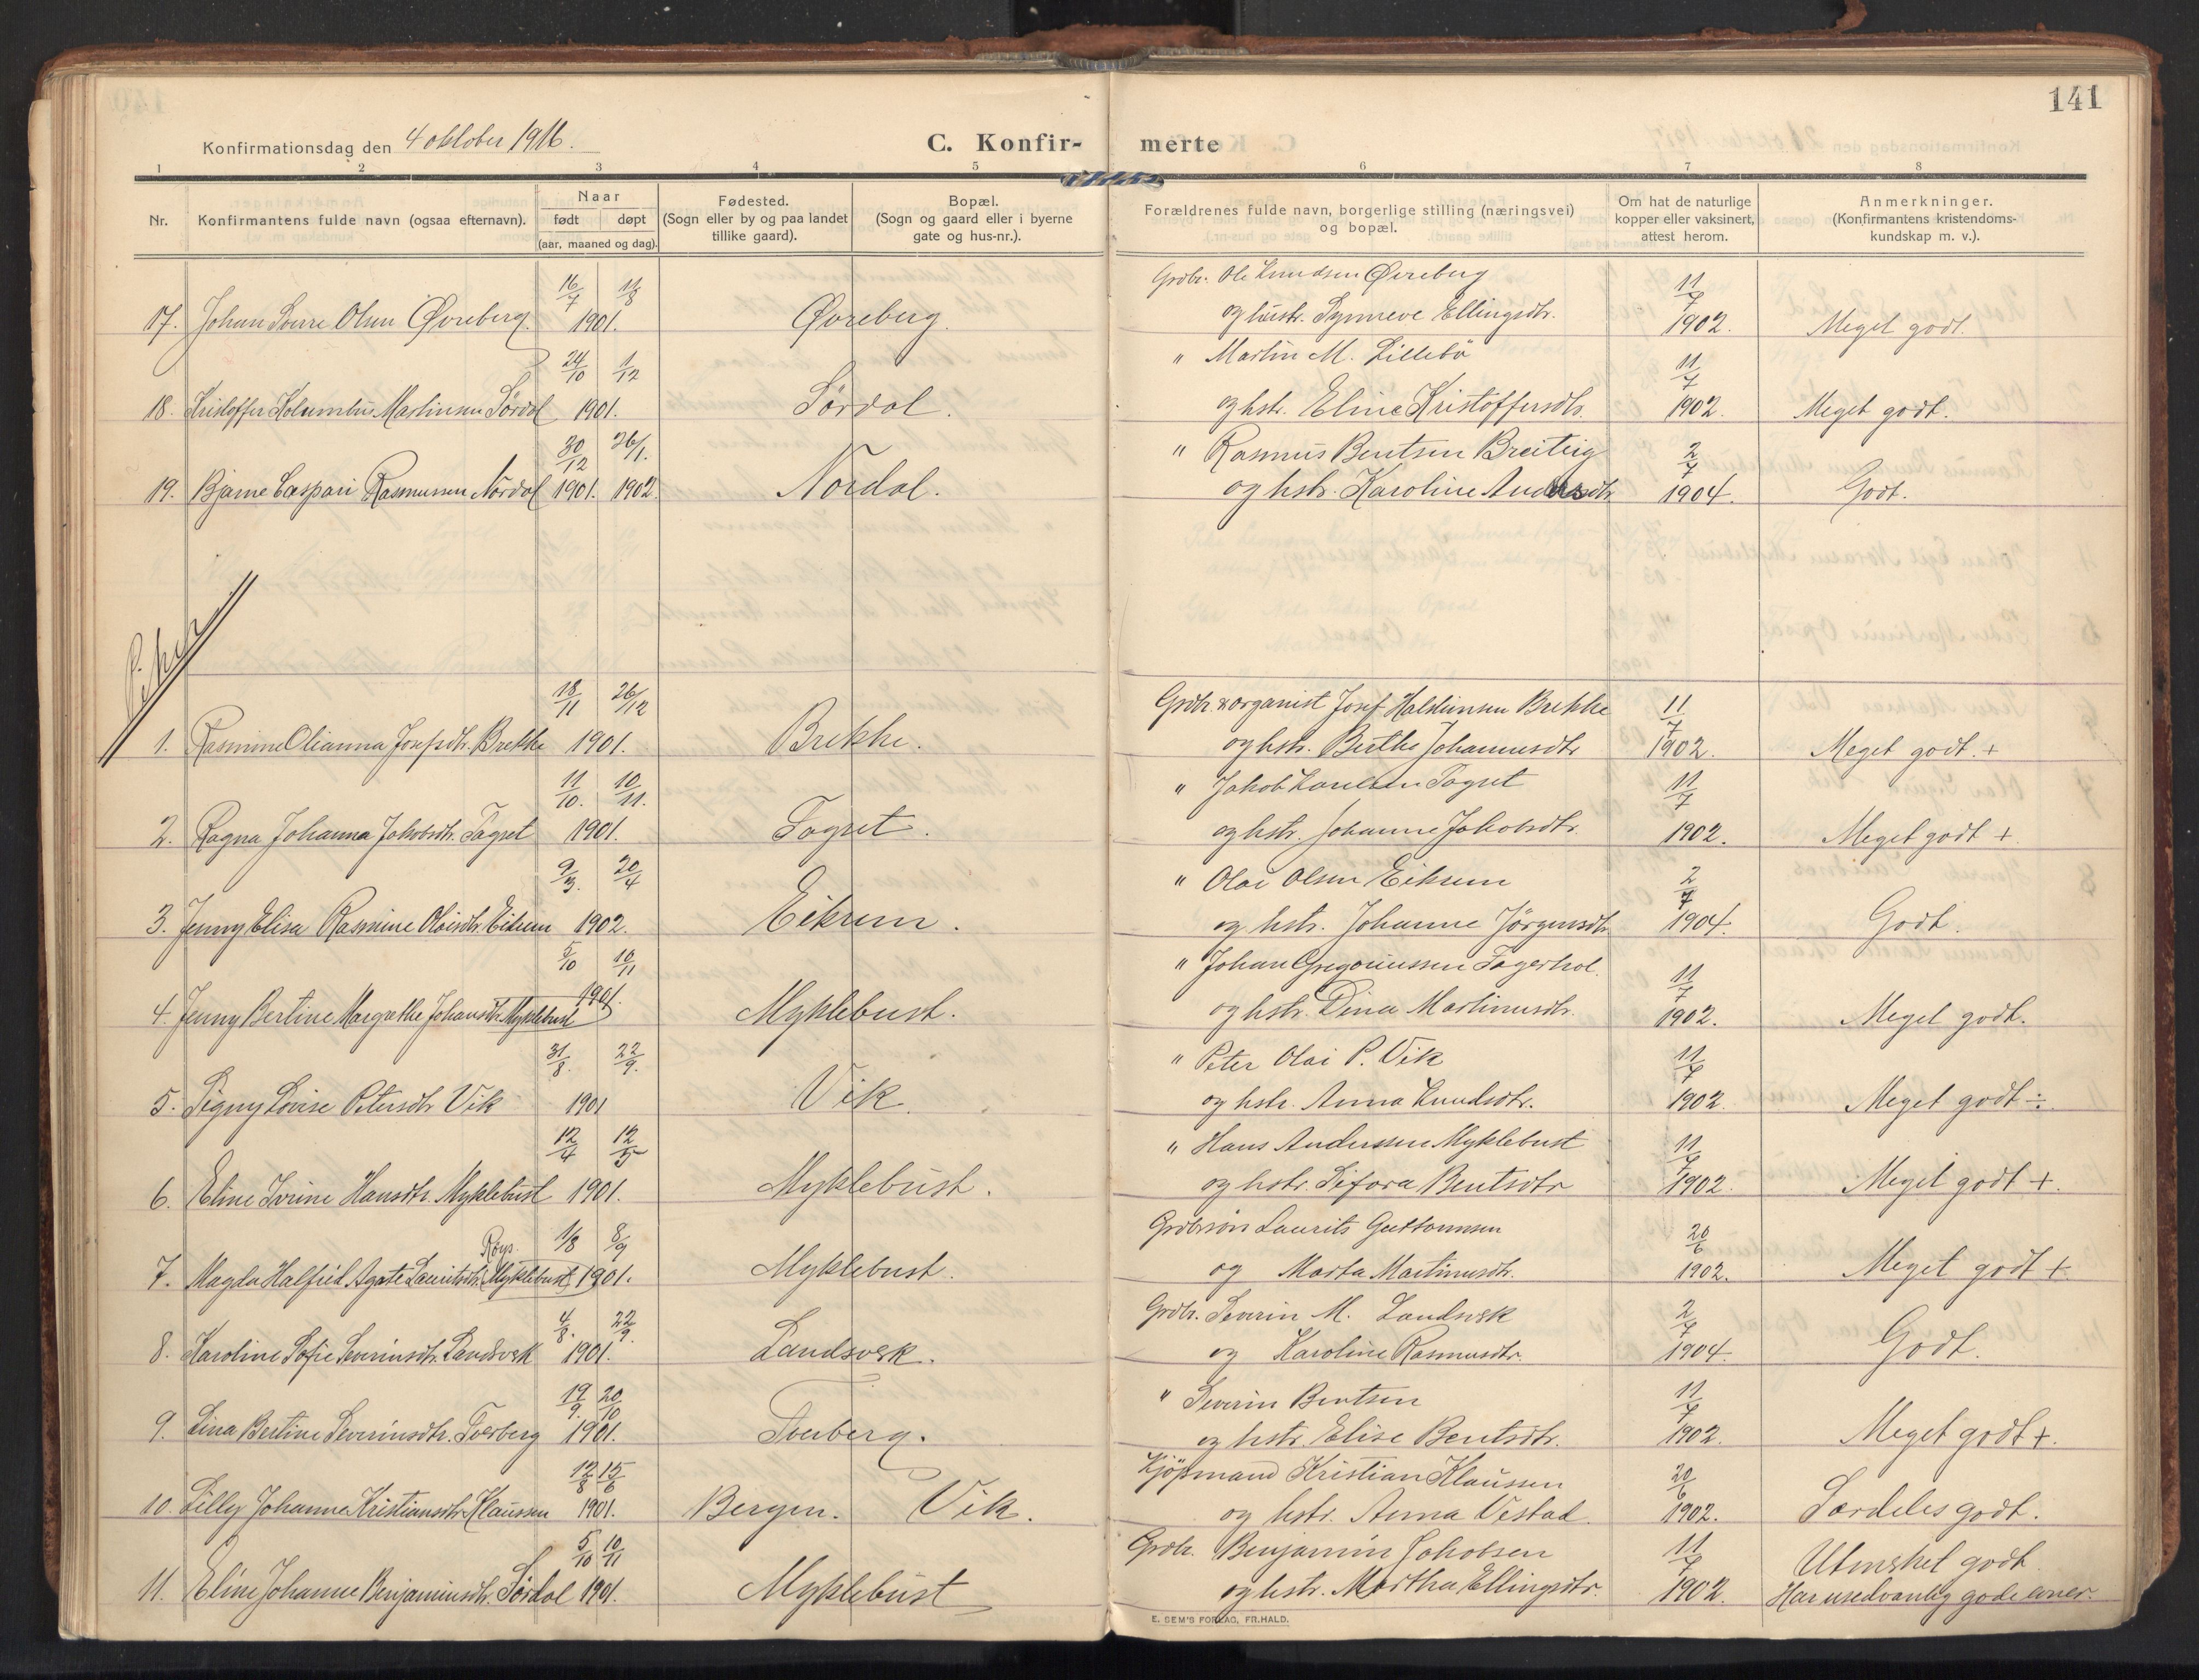 141
Konfirmationsdag den 4 oktober 1916.
C. Konfir- merte
1 2 3 4 5 6 7 8
Nr.
Konfirmantens fulde navn (ogsaa efternavn).
Naar
født døpt
(aar, maaned og dag).
Fødested.
(Sogn eller by og paa landet
tillike gaard).
Bopæl.
(Sogn og gaard eller i byerne
gate og hus-nr.).
Forældrenes fulde navn, borgerlige stilling (næringsvei)
og bopæl.
Om hat de naturlige
kopper eller vaksinert,
attest herom.
Anmerkninger.
(Konfirmantens kristendoms-
kundskap m. v.).
16/7 11/8 Grdbr. Ole Knudsen Øvreberg 11/7
17. Johan Sverre Olsen Øvreberg. 1901. Øvreberg. og hustr. Synneve Ellingsdtr. 1902. Meget godt.
24/10 1/12 " Martin M. Lillebö 11/7
18. Kristoffer Kolumbus Martinsen Sördal 1901. Sördal. og hstr. Eline Kristoffersdtr. 1902. Meget godt.
30/12 26/1. " Rasmus Bentsen Breiteig 2/7
19. Bjarne Caspari Rasmussen Nordal 1901. 1902. Nordal. og hstr. Karoline Andersdtr. 1904. Godt.
Piker
18/11 26/12 Grdbr. & organist Josef Halstensen Brekke 11/7
1. Rasmine Olianna Josefsdtr. Brekke 1901. Brekke. og hstr. Berthe Johannesdtr. 1902. Meget godt. +
11/10. 10/11. " Jakob Paulsen Fagset 11/7
2. Ragna Johanna Jakobsdtr. Fagset 1901. Fagset. og hstr. Johanne Jakobsdtr. 1902. Meget godt +
9/3. 20/4 " Olai Olsen Eikrem 2/7
3. Jenny Elisa Rasmine Olaisdtr. Eikrem 1902. Eikrem. og hstr. Johanne Jörgensdtr. 1904. Godt.
5/10 10/11 " Johan Gregoriussen Fagerhol. 11/7
4. Jenny Bertine Margrethe Johansdtr. Myklebust 1901. Myklebust. og hstr. Dina Martinusdtr. 1902. Meget godt.
31/8. 22/9. " Peter Olai P. Vik 11/7
5. Signy Lovise Petersdtr. Vik 1901 Vik. og hstr. Anna Knudsdtr. 1902. Meget godt ÷.
12/4 12/5 " Hans Anderssen Myklebust 11/7
6. Eline Ivrine Hansdtr. Myklebust 1901. Myklebust. og hstr. Sifora Bentsdtr 1902. Meget godt +.
Røys. 1/8 8/9 Grdbrsön Laurits Guttormsen 20/6
7. Magda Halfrid Agate Lauritsdtr. Myklebust 1901. Myklebust. og Marta Martinusdtr. 1902. Meget godt +
4/8. 22/9. Grdbr. Severin M. Landsvek 2/7
8. Karoline Sofie Severinsdtr. Landsvek 1901. Landsvek. og Karoline Rasmusdtr. 1904. Godt.
19/9. 20/10 " Severin Bentsen 11/7
9. Lina Bertine Severinsdtr. Tverberg 1901. Tverberg. og hstr. Elise Bentsdtr. 1902. Meget godt +.
12/8 15/6 Kjöpmand Kristian Klaussen 20/6
10. Lilly Johanne Kristiansdtr. Klaussen 1901. Bergen. Vik. og hstr. Anna Vestad. 1902. Særdeles godt.
5/10 10/11 Grdbr. Benjamin Jakobsen 11/7 Utmerket godt.
11. Eline Johanne Benjaminsdtr. Sördal 1901. Myklebust og hstr. Martha Ellingsdtr. 1902. Har usedvanlig gode evner.
E. SEM'S FORLAG, FR.HALD.